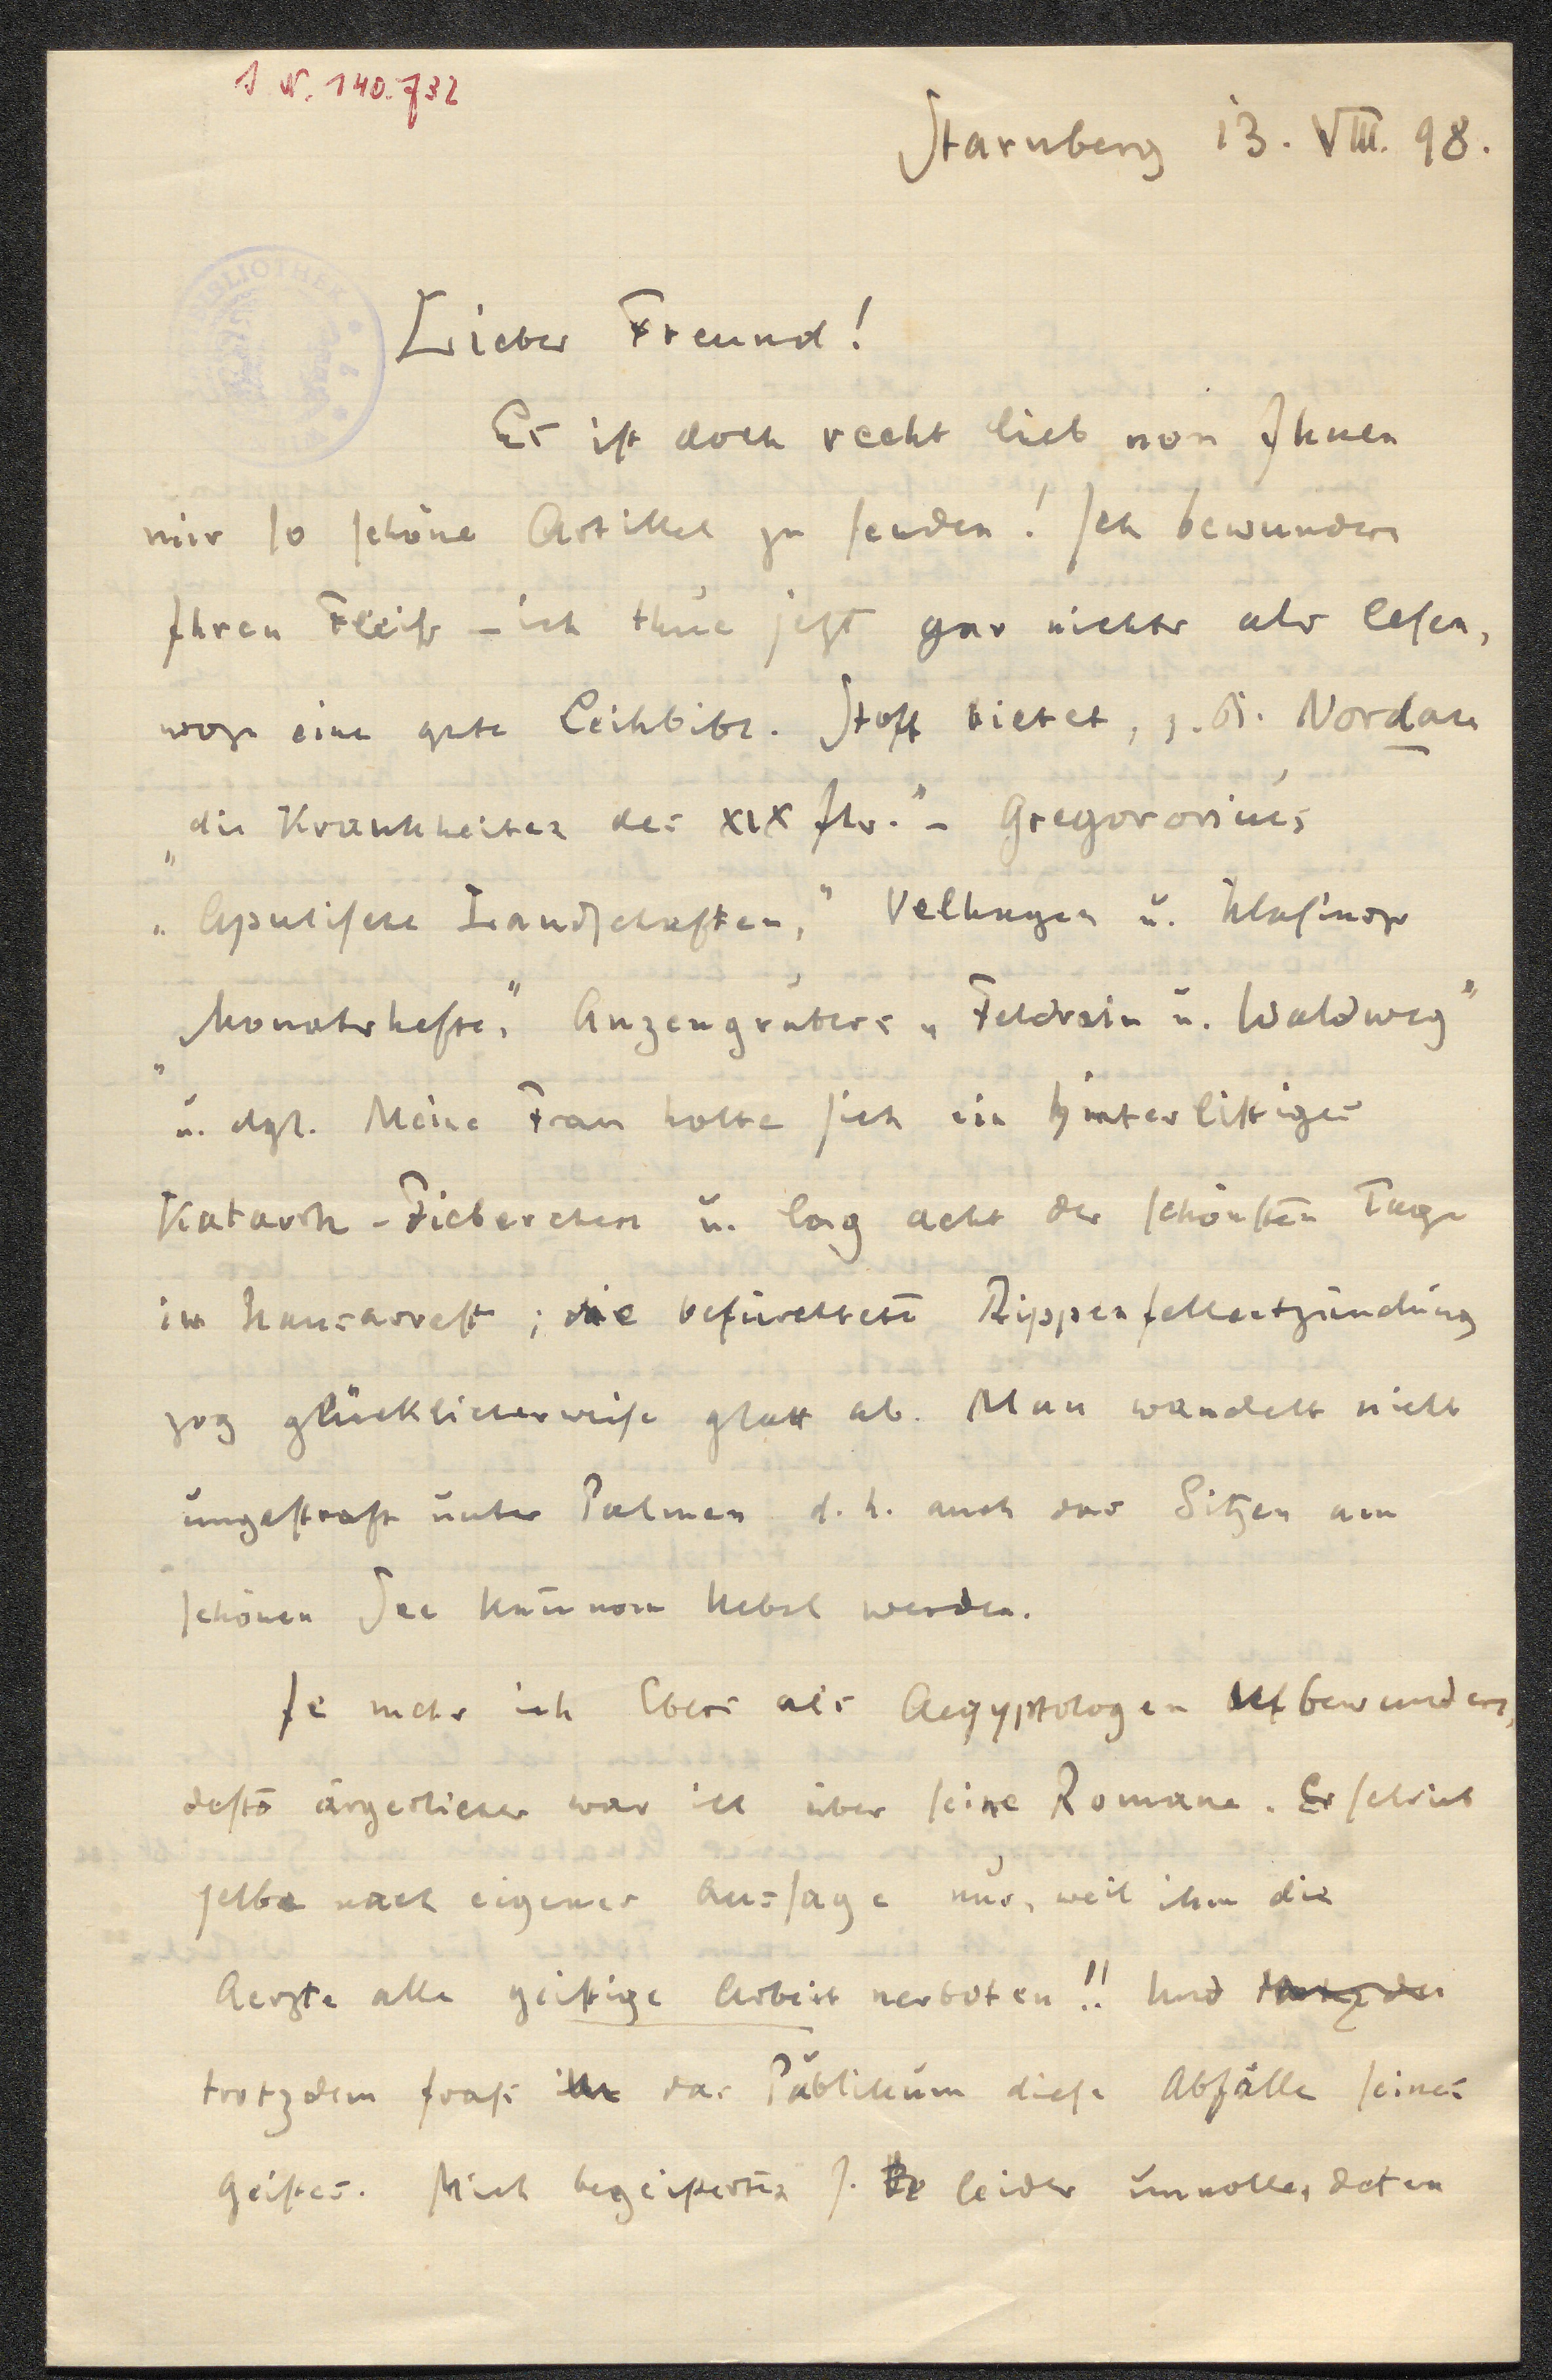 I. N. 140.732
Starnberg 13. VIII. 98.
BIBLIOTHEK
Lieber Freund!
Es ist doch recht lieb von Ihnen
mir so schöne Artikel zu senden! Ich bewundere
Ihren Fleiß – ich thue jetzt gar nichts als lesen,
wozu eine gute Leihbibl. Stoff bietet, z. B. Nordau
„die Krankheiten des XIX Jhr." – Gregororius
„Apulische Landschaften," Velhagen u. Klasings
„Monatshefte," Anzengrubers „Feldrain u. Waldweg"
u. dgl. Meine Frau holte sich ein hinterlistiges
Katarrh-Fieberchen u. lag acht der schönsten Tage
im Hausarrest; die befürchtete Rippenfellentzündung
zog glücklicherweise glatt ab. Man wandelt nicht
ungestraft unter Palmen d. h. auch das Sitzen am
schönen See kann von Uebel werden.
Je mehr ich Ebers als Aegyptologen bewundere,
desto ärgerlicher war ich über seine Romane. Er schrieb
selbe nach eigener Aussage nur, weil ihm die
Aerzte alle geistige Arbeit verboten!! Und
trotzdem fraß das Publikum diese Abfälle seines
Geistes. Mich begeisterten s. leider unvollendeten